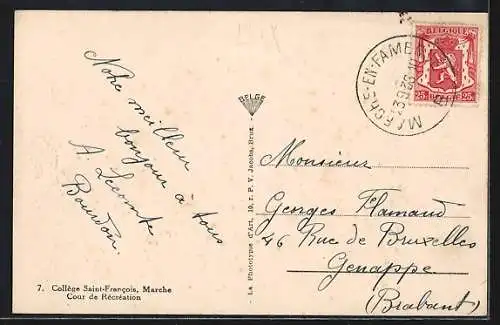 Notre meilleur
bonjour à tous
A. Lecomte
Bourdon.
7. Collège Saint-François, Marche
Cour de Récréation
BELGE
La Phototypie d'Art, 10, r. P. V. Jacobs, Brux.
BELGIQUE
25 25
MARCHE-EN-FAMENNE
Monsieur
Georges Flamand
46 Rue de Bruxelles
Genappe
(Brabant)